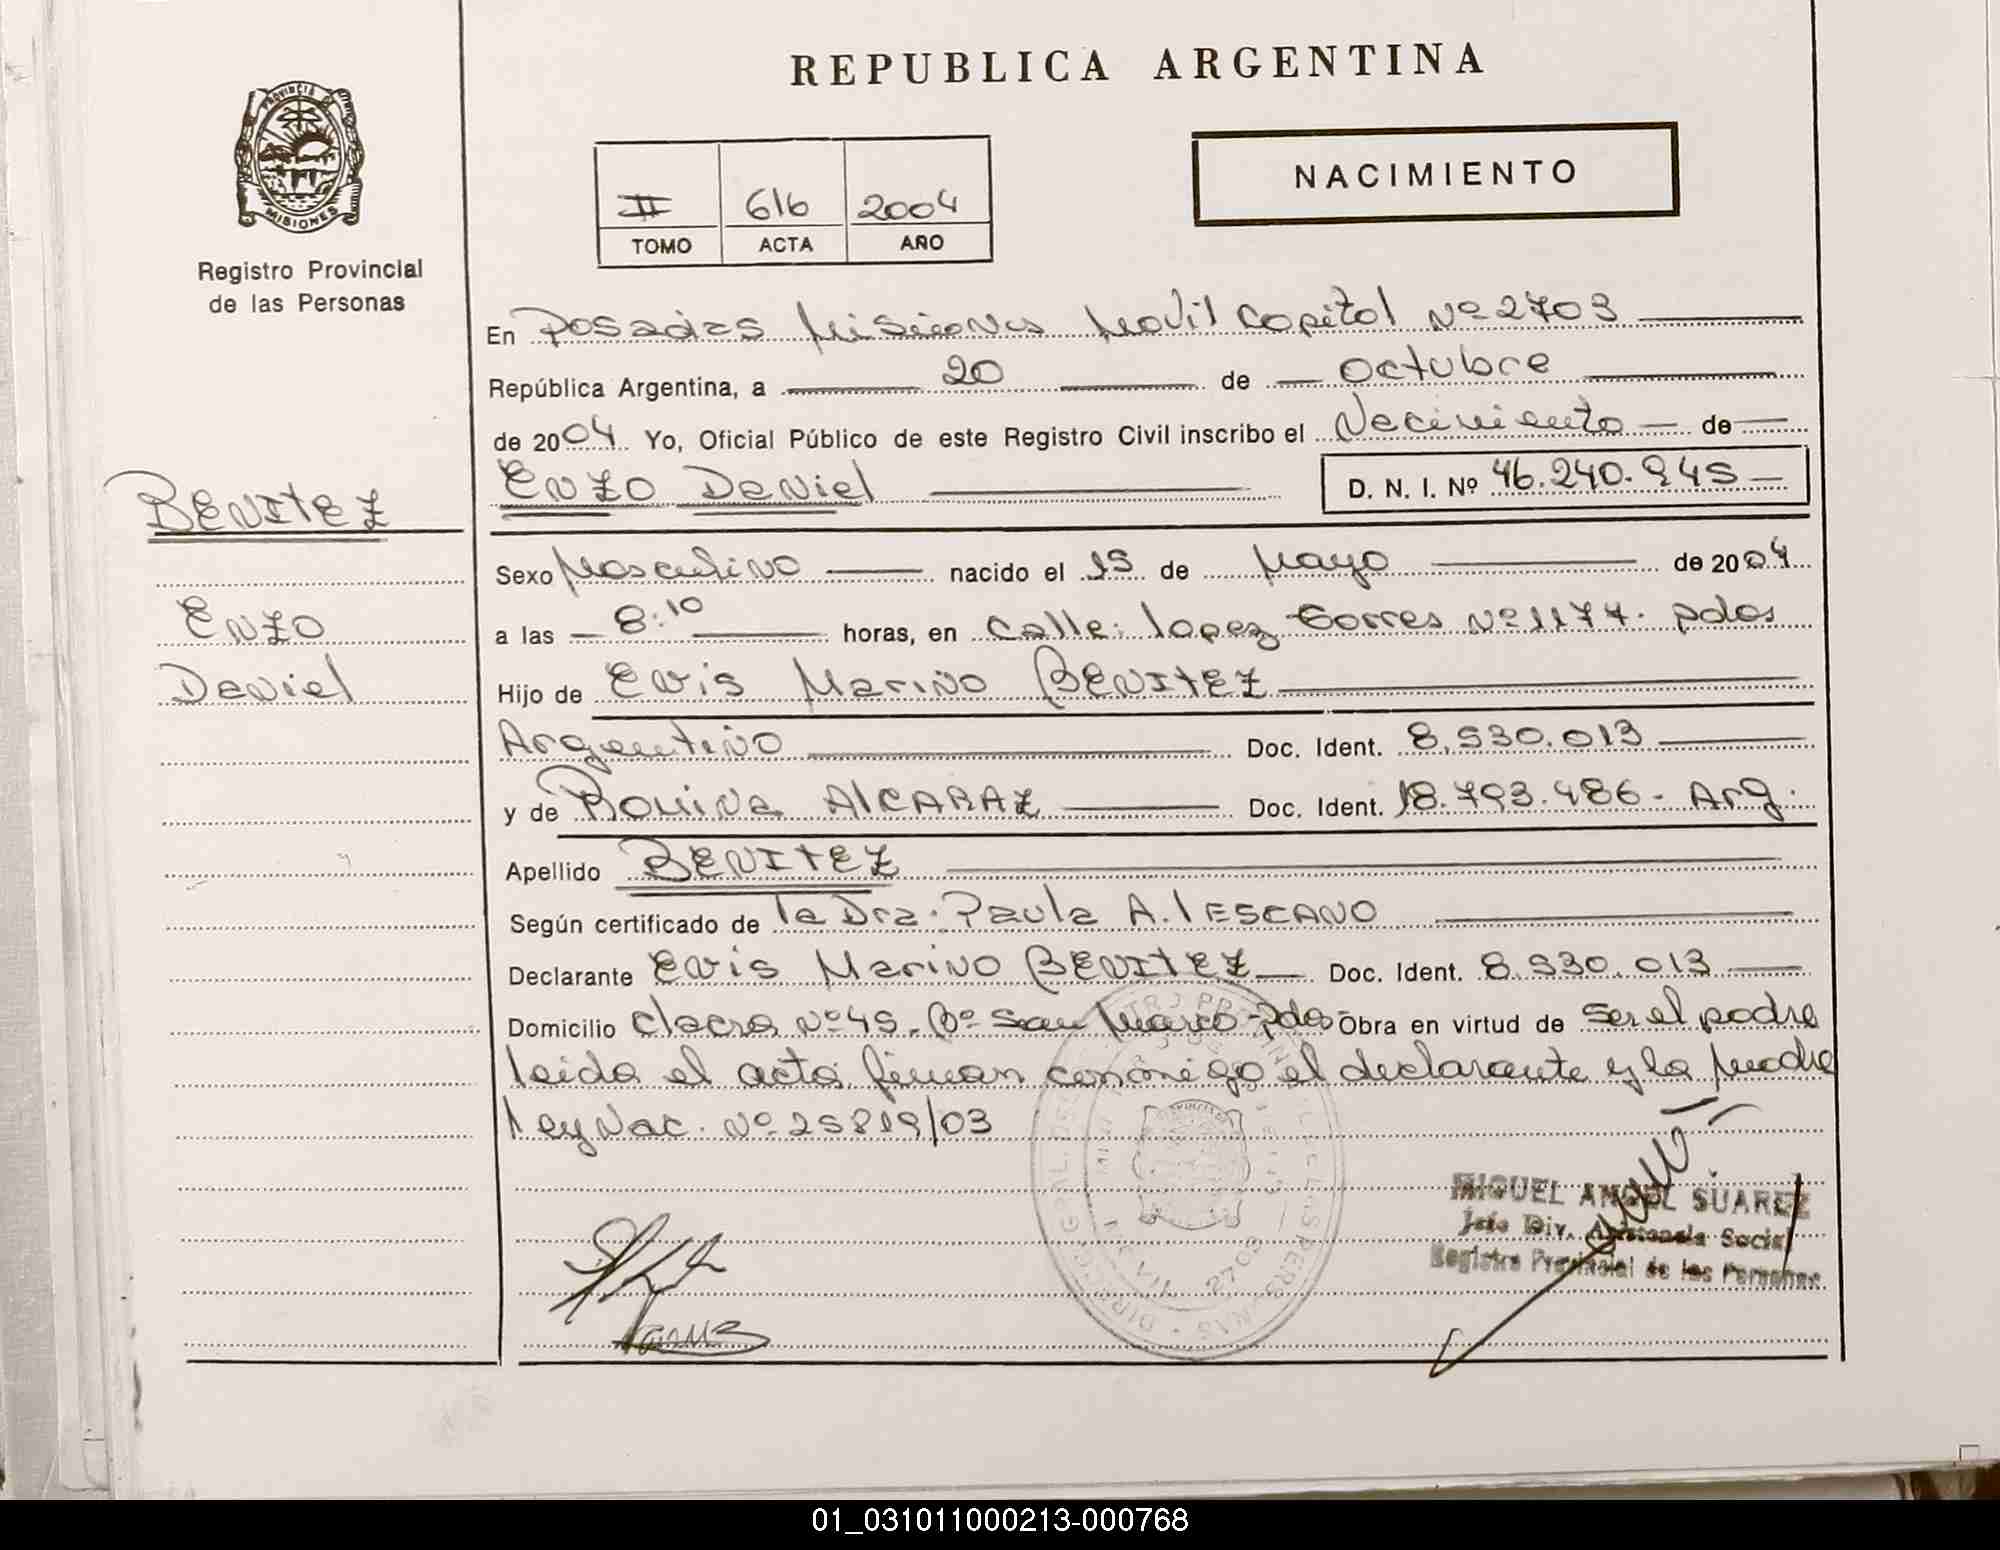 REPUBLICA ARGENTINA
PROVINCIA DE
MISIONES
Registro Provincial
de las Personas
II 616 2004
TOMO ACTA AÑO
NACIMIENTO
En Posadas Misiones Movil Capital Nº 2703
República Argentina, a 20 de Octubre
de 2004 Yo, Oficial Público de este Registro Civil inscribo el Nacimiento de
BENITEZ
Enzo Daniel D. N. I. Nº 46.240.945
Sexo Masculino nacido el 15 de Mayo de 2004
Enzo
a las 8:10 horas, en Calle: Lopez Torres Nº 1177. Pdas
Daniel
Hijo de Evis Marino BENITEZ
Argentino Doc. Ident. 8.530.013
y de Romina ALCARAZ Doc. Ident. 18.793.486 - Arg.
Apellido BENITEZ
Según certificado de la Dra. Paula A. LESCANO
Declarante Evis Marino BENITEZ Doc. Ident. 8.530.013
Domicilio Chacra Nº 45. Bº San Marco - Pdas - Obra en virtud de Ser el padre
leida el acta firman conmigo el declarante y la Madre
Ley Nac. Nº 25819/03
MIGUEL ANGEL SUAREZ
Jefe Div. Asistencia Social
Registro Provincial de las Personas
2703
01_031011000213-000768